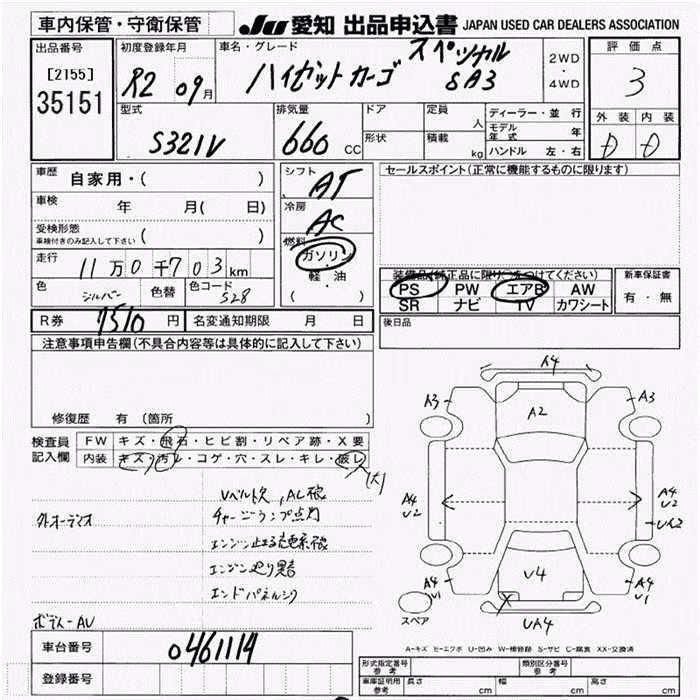 車内保管・守衛保管
JU 愛知 出品申込書 JAPAN USED CAR DEALERS ASSOCIATION
出品番号
[2155]
35151
初度登録年月
R2 09月
車名・グレード
ハイゼットカーゴ スペシャル SA3
2WD
・
4WD
評価点
3
外装 内装
D D
型式
S321V
排気量
660 CC
ドア
形状
定員 人
積載 kg
ディーラー・並行
モデル年式 年
ハンドル 左・右
車歴 自家用・( )
車検 年 月( 日)
受検形態
車検付きのみ記入して下さい ( )
走行 11万0千703km
色 シルバー 色替 色コード S28
シフト AT
冷房 AC
燃料 ガソリン
・
軽油
( )
セールスポイント(正常に機能するものに限ります)
装備品(純正品に限り○をつけてください)
PS PW エアB AW
SR ナビ TV カワシート
新車保証書
有・無
R券 7510 円 名変通知期限 月 日
後日品
注意事項申告欄(不具合内容等は具体的に記入して下さい)
修復歴 有 (箇所 )
検査員
記入欄
FW キズ・飛石・ヒビ割・リペア跡・X要
内装 キズ・汚レ・コゲ・穴・スレ・キレ・破レ
(大)
Vベルト欠, ACL破
外オーディオ チャージランプ点灯
エンジン止まる 充電系破
エンジン廻り異音
エンドパネルシワ
ボデー AU
A4
A3 A3
A2
A4
U2
A4
U2
UK2
U4
A4
U1
A4
U1
X
UA4
スペア
A-キズ E-エクボ U-凹み W-補修跡 S-サビ C-腐食 XX-交換済
車台番号 0461114
登録番号
形式指定番号
参考
類別区分番号
参考
車庫証明用
参考
長さ cm 幅 cm 高さ cm